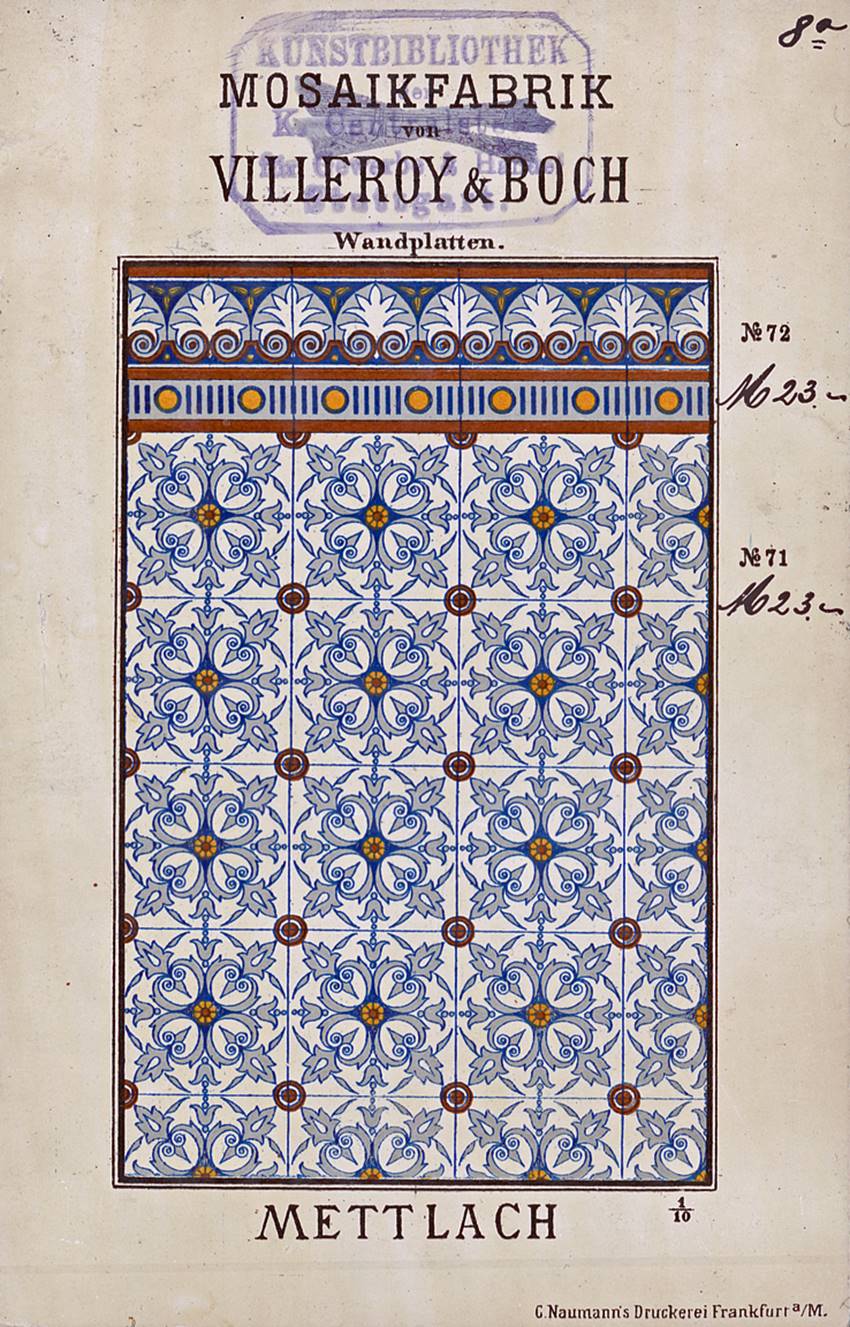 8a
KUNSTBIBLIOTHEK
MOSAIKFABRIK
von
VILLEROY & BOCH
Stuttgart.
Wandplatten.
№ 72
M 23.-
№ 71
M 23.-
METTLACH
1/10
C. Naumann's Druckerei Frankfurt a/M.